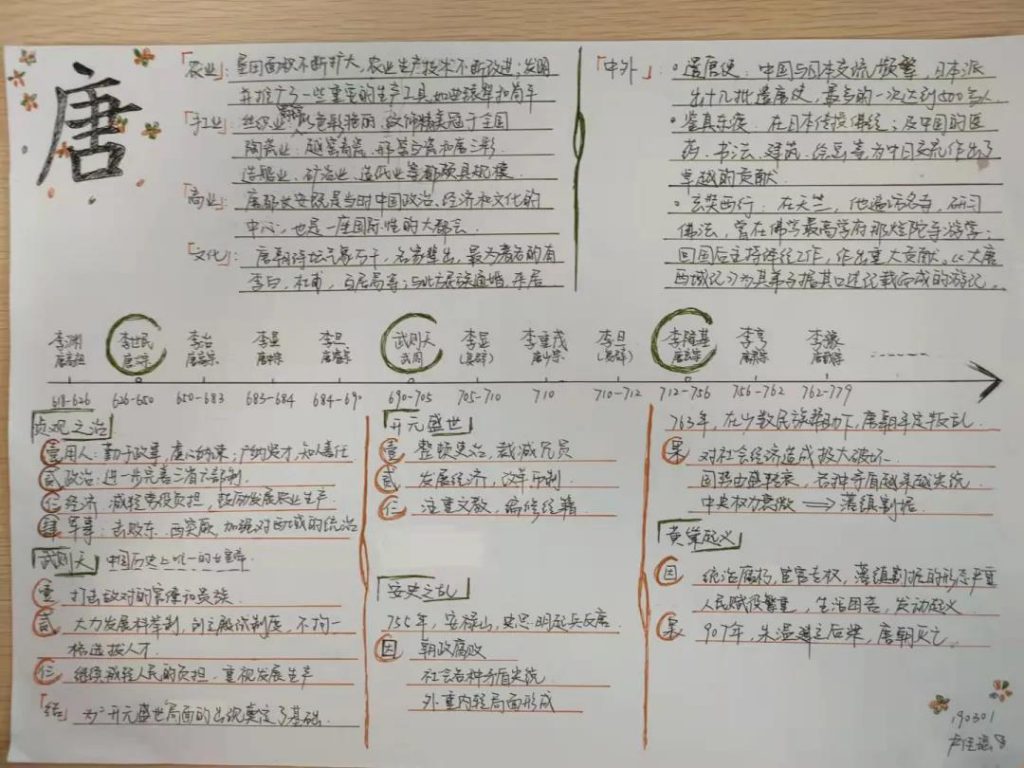 唐
「农业」：垦田面积不断扩大，农业生产技术不断改进；发明
并推广了一些重要的生产工具，如曲辕犁和筒车
「手工业」：丝织业：品种繁多，色彩艳丽，纹饰精美冠于全国
陶瓷业：越窑青瓷、邢窑白瓷和唐三彩
造船业、矿冶业、造纸业等都颇具规模
「商业」：唐都长安既是当时中国政治、经济和文化的
中心，也是一座国际性的大都会
「文化」：唐朝诗坛名家辈出，最为著名的有
李白、杜甫、白居易等；与北方民族通婚、杂居
「中外」：·遣唐使：中国与日本交流频繁，日本派
出十几批遣唐使，最多的一次达到500多人
·鉴真东渡：在日本传授佛经；及中国的医
药、书法、建筑、绘画等，为中日交流作出了
卓越的贡献
·玄奘西行：在天竺，他遍访名寺，研习
佛法，曾在佛学最高学府那烂陀寺游学；
回国后主持译经工作，作出重大贡献。《大唐
西域记》为其弟子据其口述记载而成的游记。
李渊 李世民 李治 李显 李旦 武则天 李显 李重茂 李旦 李隆基 李亨 李豫
唐高祖 唐太宗 唐高宗 唐中宗 唐睿宗 武周 (复辟) 唐少帝 (复辟) 唐玄宗 唐肃宗 唐代宗
618-626 626-650 650-683 683-684 684-690 690-705 705-710 710 710-712 712-756 756-762 762-779
「贞观之治」
壹 用人：勤于政事，虚心纳谏；广纳贤才，知人善任
贰 政治：进一步完善三省六部制
仨 经济：减轻劳役负担，鼓励发展农业生产
肆 军事：击败东、西突厥，加强对西域的统治
「武则天」中国历史上唯一的女皇帝
壹 打击敌对的官僚和贵族
贰 大力发展科举制，创立殿试制度，不拘一
格选拔人才
仨 继续减轻人民的负担，重视发展生产
「结」对“开元盛世”局面的出现奠定了基础
「开元盛世」
壹 整顿吏治，裁减冗员
贰 发展经济，改革币制
仨 注重文教，编修经籍
「安史之乱」
755年，安禄山，史思明起兵反唐
因 朝政腐败
社会各种矛盾尖锐
外重内轻局面形成
763年，在少数民族帮助下，唐朝平定叛乱
果 对社会经济造成极大破坏
国势由盛转衰，各种矛盾越来越尖锐
中央权力衰微 ⟹ 藩镇割据
「黄巢起义」
因 统治腐朽，宦官专权，藩镇割据的形态严重
人民赋役繁重，生活困苦，发动起义
果 907年，朱温建立后梁，唐朝灭亡
190301